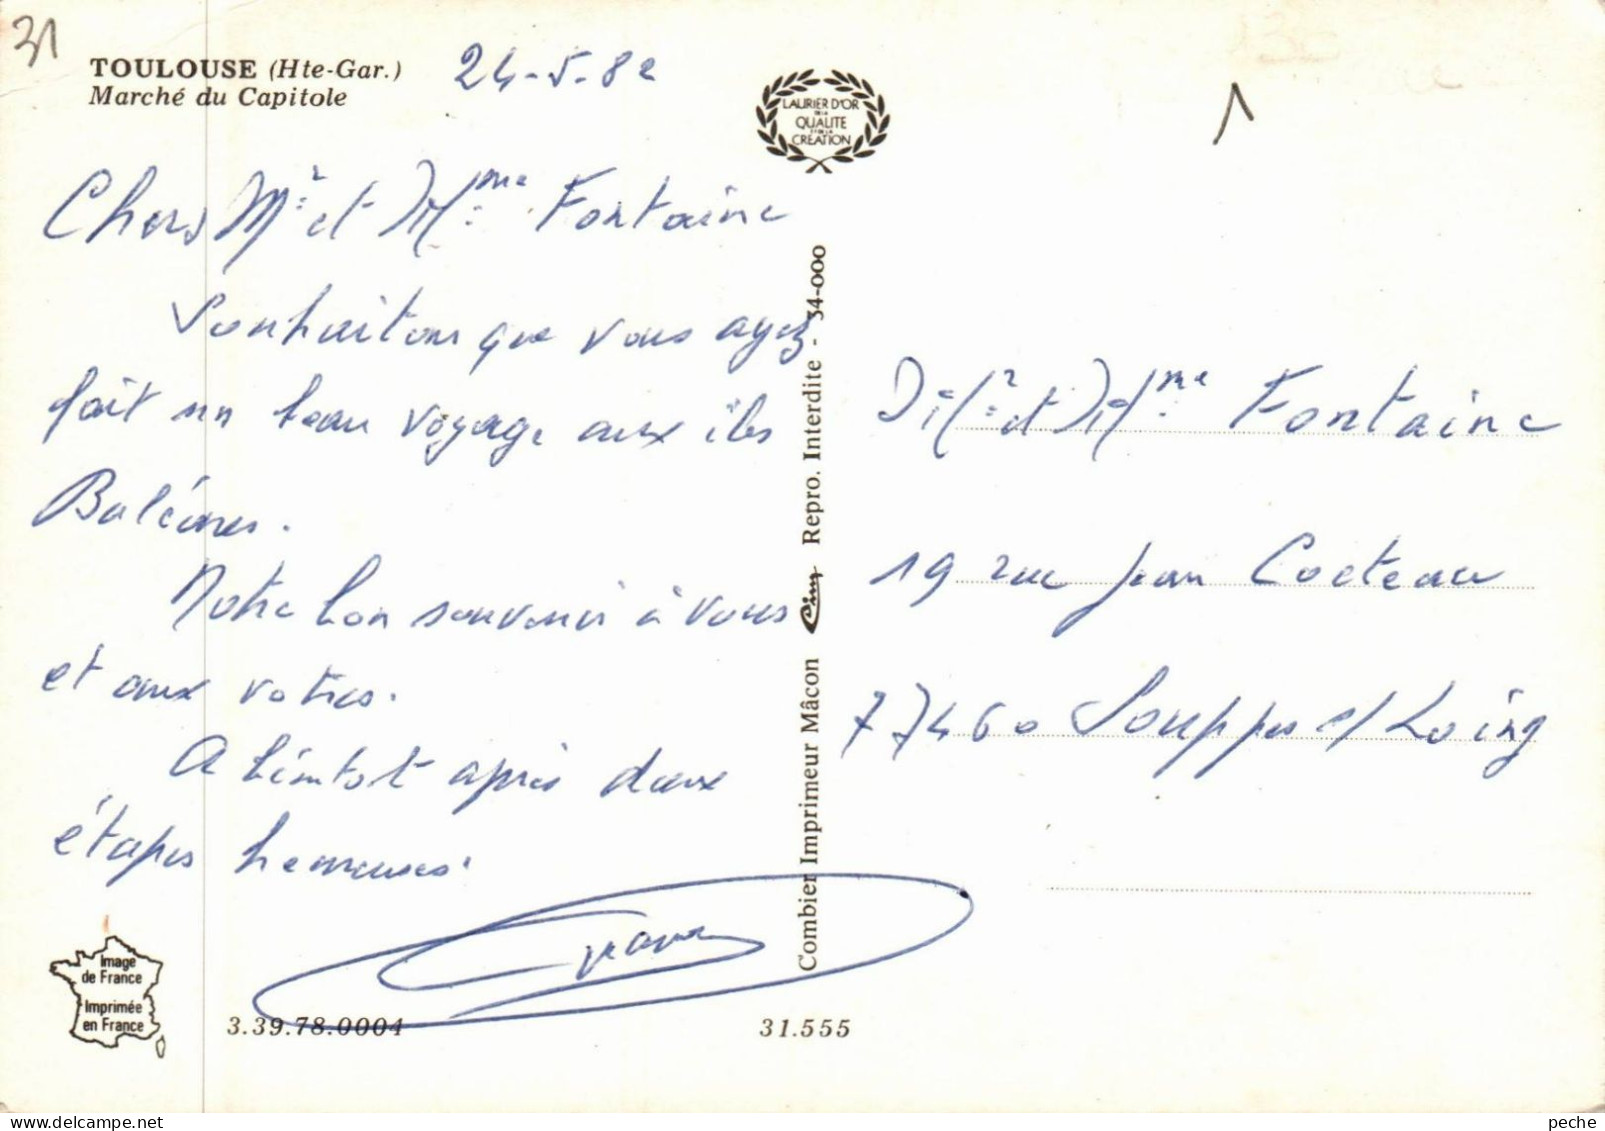 31
TOULOUSE (Hte-Gar.)
Marché du Capitole
24-5-82
LAURIER D'OR
DE LA
QUALITE
ET DE LA
CREATION
1
Chers Mr et Mme Fontaine
Souhaitons que vous ayez
fait un beau voyage aux îles
Baléares.
Notre bon souvenir à vous
et aux votres.
A bientot après deux
étapes heureuses.
Image
de France
Imprimée
en France
3.39.78.0004
31.555
Combier Imprimeur Mâcon Cim Repro. Interdite - 34-000
Mr et Mme Fontaine
19 rue Jean Cocteau
77460 Souppes s/ Loing
peche